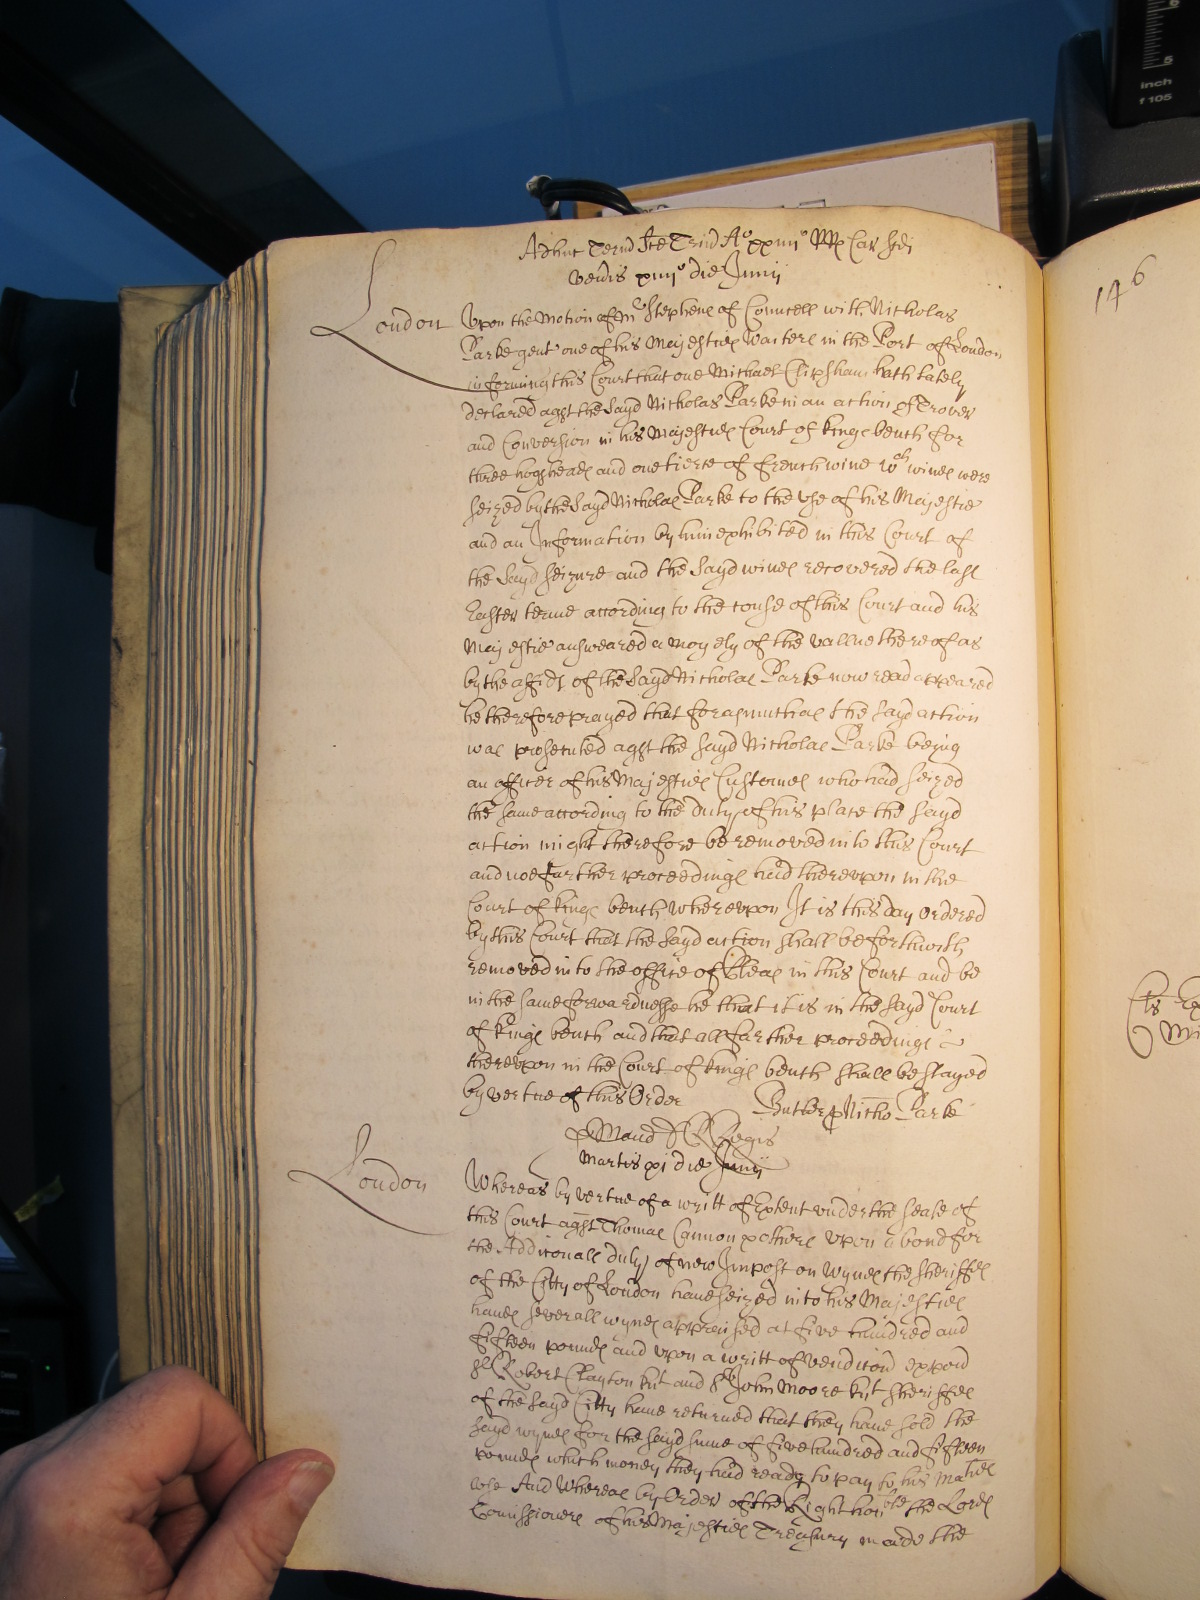 Adhuc Term Sce Trin A° xxiiii° RRs Car Scdi
Veneris xiiii° die Junii
London
Upon the Motion of Mr Stephens of Councell with Nicholas
Parke gent one of his Majesties Waiters in the Port of London
informing this Court that one Michael Clipsham hath lately
declared agst the Sayd Nicholas Parke in an action of Trover
and Conversion in his Majesties Court of Kings bench for
three hogsheads and one tierce of french wine wch wines were
seized by the Sayd Nicholas Parke to the use of his Majestie
and an Information by him exhibited in this Court of
the Sayd seizure and the Sayd wines recovered the last
Easter terme according to the course of this Court and his
Majestie answeared a moyety of the vallue thereof as
by the affidt of the Sayd Nicholas Parke now read appeared
he therefore prayed that forasmuch as the Sayd action
was prosecuted agst the Sayd Nicholas Parke being
an officer of his Majesties Customes who had seized
the same according to the duty of his place the Sayd
action might therefore be removed into this Court
and noe further proceedings had thereupon in the
Court of Kings bench whereupon It is this day ordered
by this Court that the Sayd action shall be forthwith
removed into the office of Pleas in this Court and be
in the same forwardnesse there that it is in the Sayd Court
of Kings bench and that all further proceedings
thereupon in the Court of Kings bench shall be stayed
by vertue of this Order Butler p Nicho Parke
Regis
Martis xi die Junii
London
Whereas by vertue of a writt of Extent under the Seale of
this Court agst Thomas Cannon & others upon a bond for
the Additionall duty of new Impost on wynes the Sheriffes
of the Citty of London have seized into his Majesties
hands severall wynes appraised at five hundred and
fifteen pounds and upon a writt of venditioni expon
Sr Robert Clayton knt and Sr John Moore knt Sheriffes
of the Sayd Citty have returned that they have sold the
Sayd wynes for the Sayd sume of five hundred and fifteen
pounds which money they had ready to pay to his Maties
use And Whereas by Order of the Right honble the Lords
Comissioners of his Majesties Treasury made the
146
inch
f 105